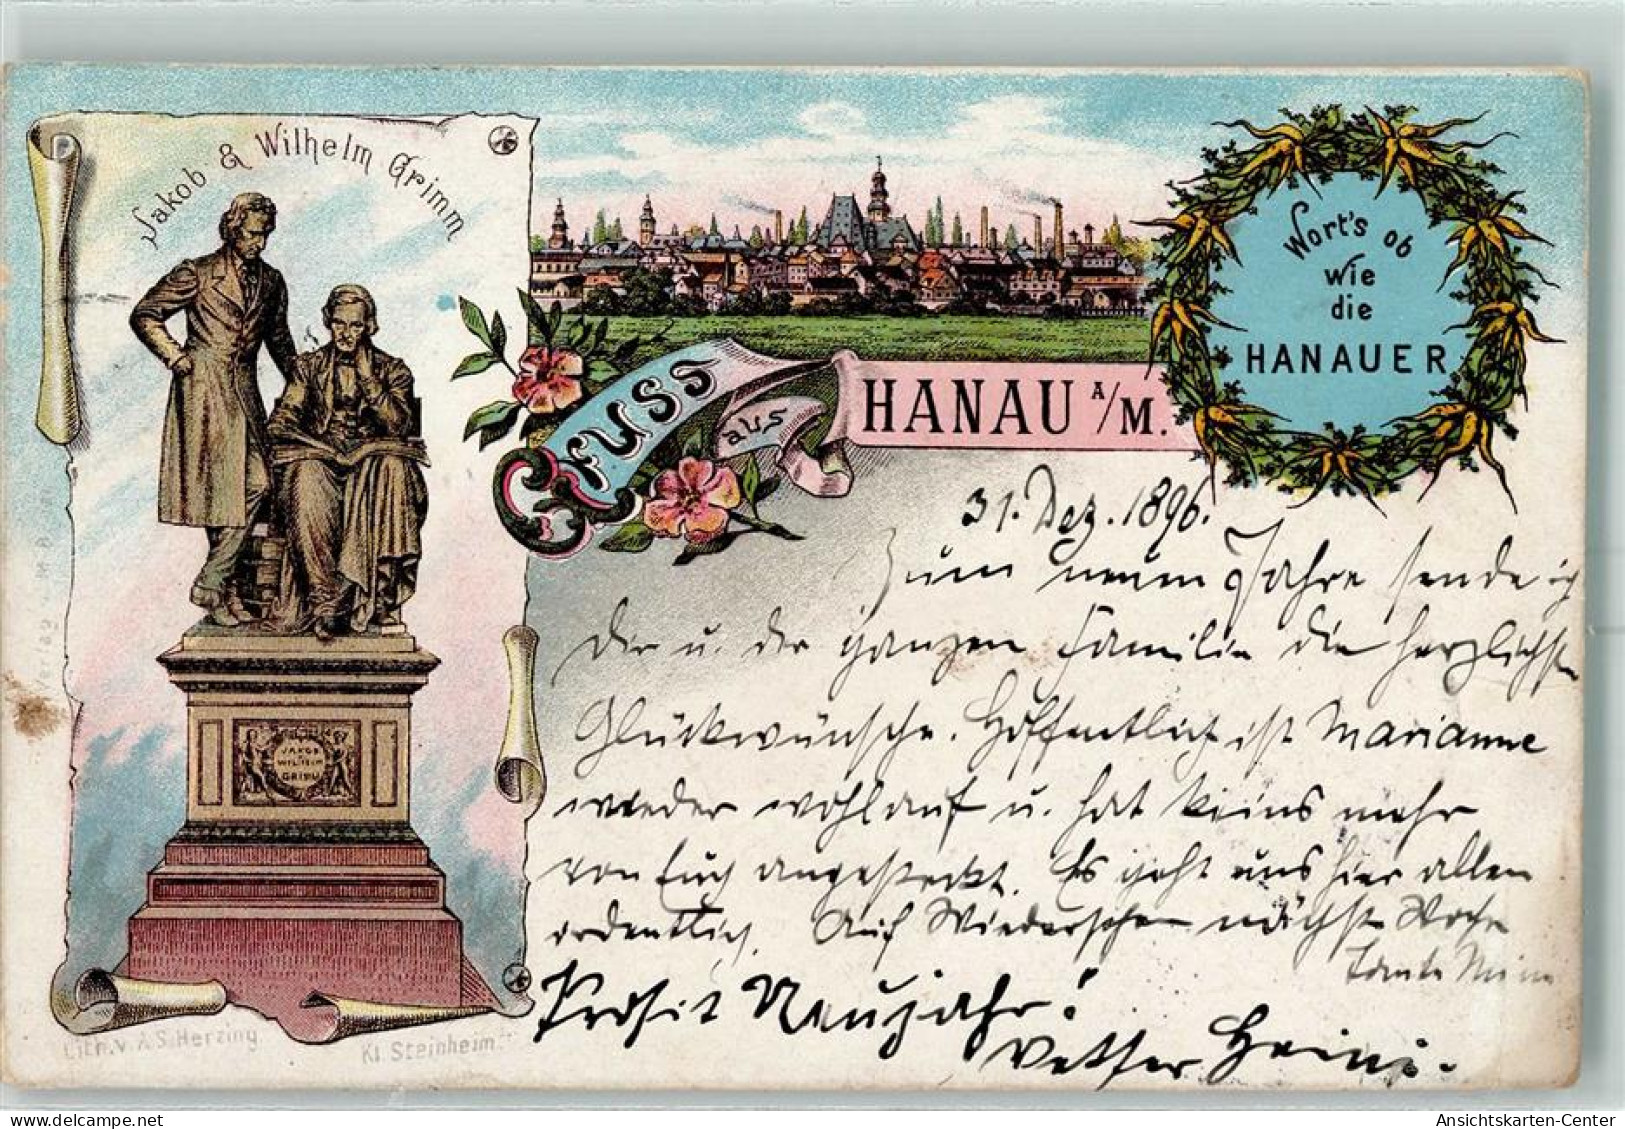 Jakob & Wilhelm Grimm
JAKOB
WILHELM
GRIMM
Gruss
aus
HANAU A/M.
Wort's ob
wie
die
HANAUER
31. Dez. 1896.
Zum neuen Jahre sende ich
Dir u. der ganzen Familie die herzlichsten
Glückwünsche. Hoffentlich ist Marianne
wieder wohlauf u. hat keins mehr
von Euch angesteckt. Es geht uns hier allen
ordentlich. Auf Wiedersehen nächste Woche
Tante Mina
Prosit Neujahr!
Vetter Heini.
Verlag
Lith. v. A. S. Herzing
Kl. Steinheim
Ansichtskarten-Center